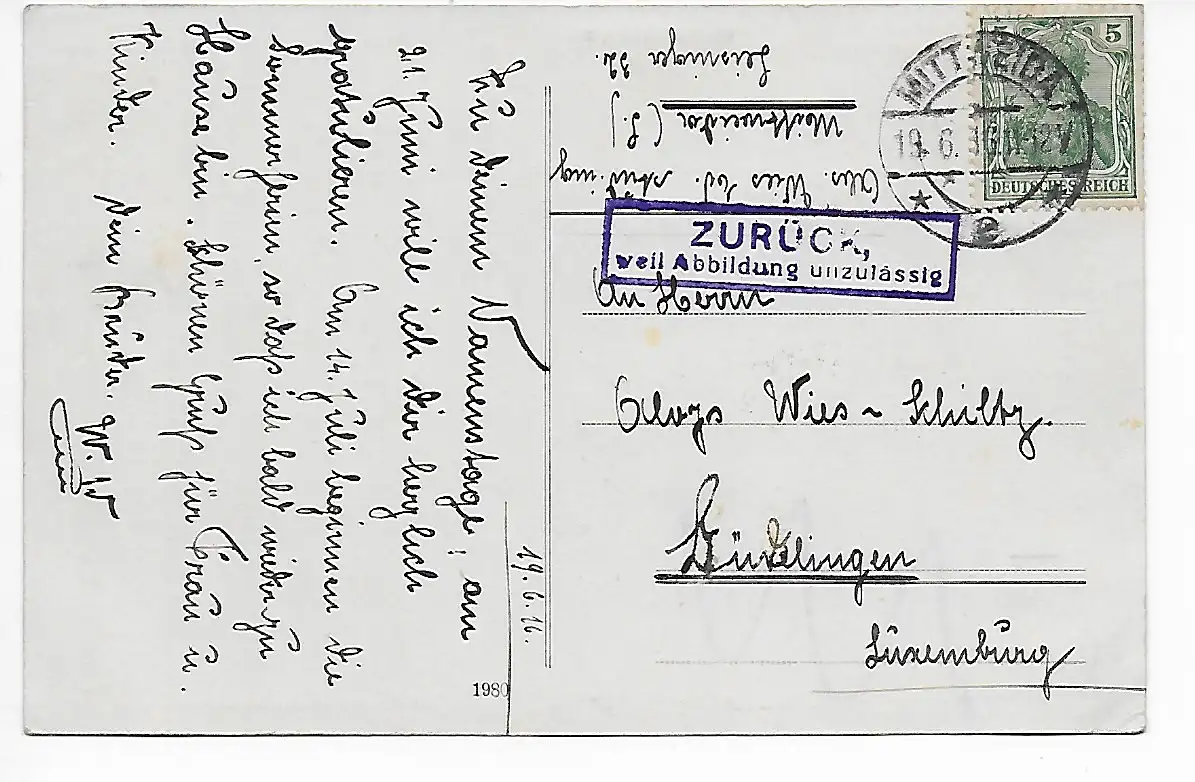 Zu deinem Namenstage, am
21. Juni will ich dir herzlich
gratulieren. Am 14. Juli beginnen die
Sommerferien, so daß ich bald wieder zu
Hause bin. Schönen Gruß für Frau u.
Kinder. Dein Bruder. W. W
19.6.16.
1980
Abs. Wies stud. ing
Mittweida (S.)
Leisniger 32.
5 5
DEUTSCHES REICH
MITTWEIDA
19.6.16. 11-12V
* e *
ZURÜCK,
weil Abbildung unzulässig
An Herrn
Aloys Wies-Schiltz.
Düdelingen
Luxemburg